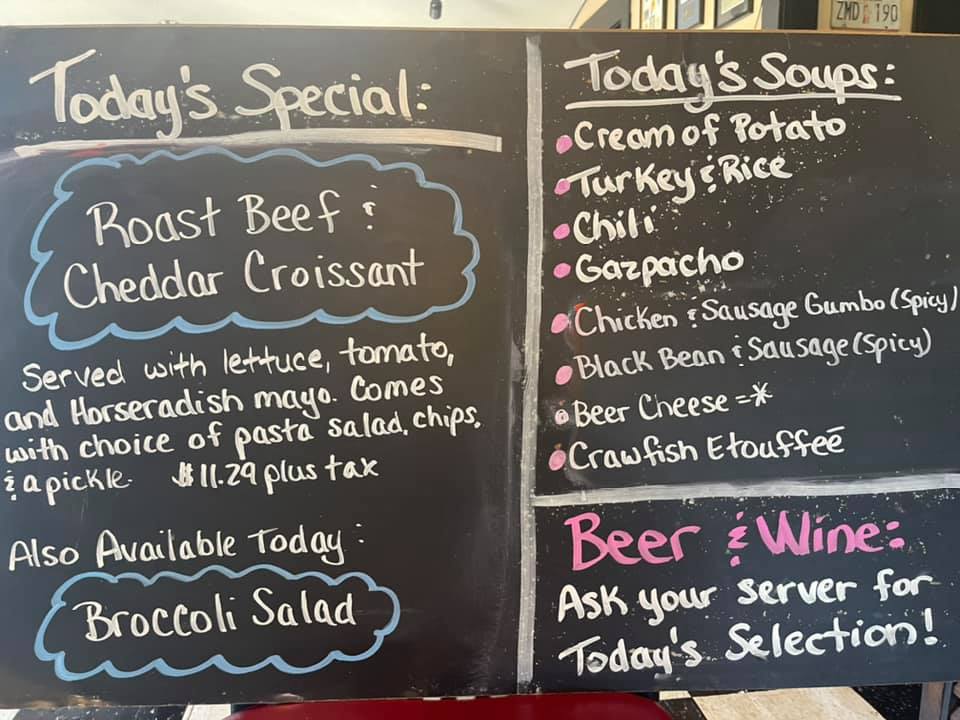 Today's Special:
Roast Beef &
Cheddar Croissant
Served with lettuce, tomato,
and Horseradish mayo. Comes
with choice of pasta salad, chips,
& a pickle. $11.29 plus tax
Also Available Today:
Broccoli Salad
Today's Soups:
Cream of Potato
Turkey & Rice
Chili
Gazpacho
Chicken & Sausage Gumbo (Spicy)
Black Bean & Sausage (Spicy)
Beer Cheese =*
Crawfish Etouffeé
Beer & Wine:
Ask your server for
Today's Selection!
ZMD 190